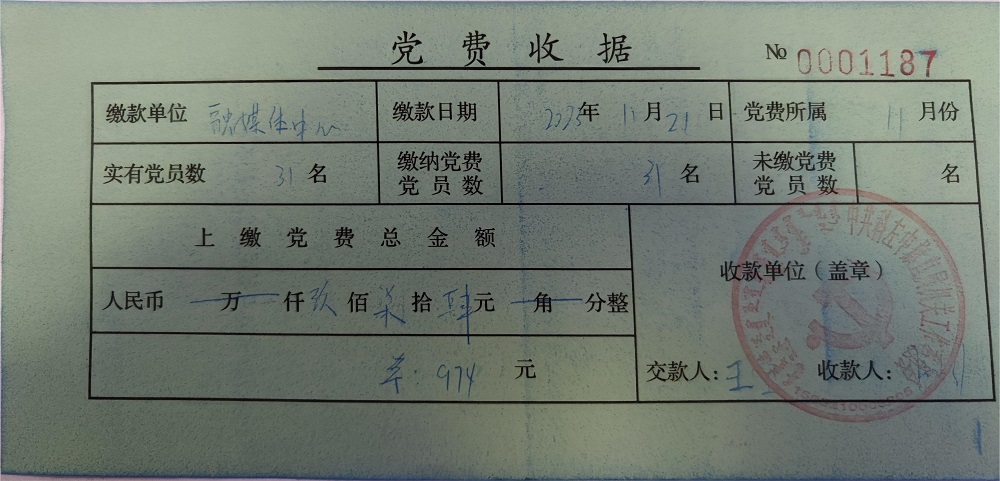 党费收据
№ 0001187
缴款单位 融媒体中心 缴款日期 2025年 11月 21日 党费所属 11月份
实有党员数 31名 缴纳党费党员数 31名 未缴党费党员数 名
上缴党费总金额
人民币 万 仟玖佰柒拾肆元 角 分整
收款单位（盖章）
¥：974 元
交款人：王 收款人：